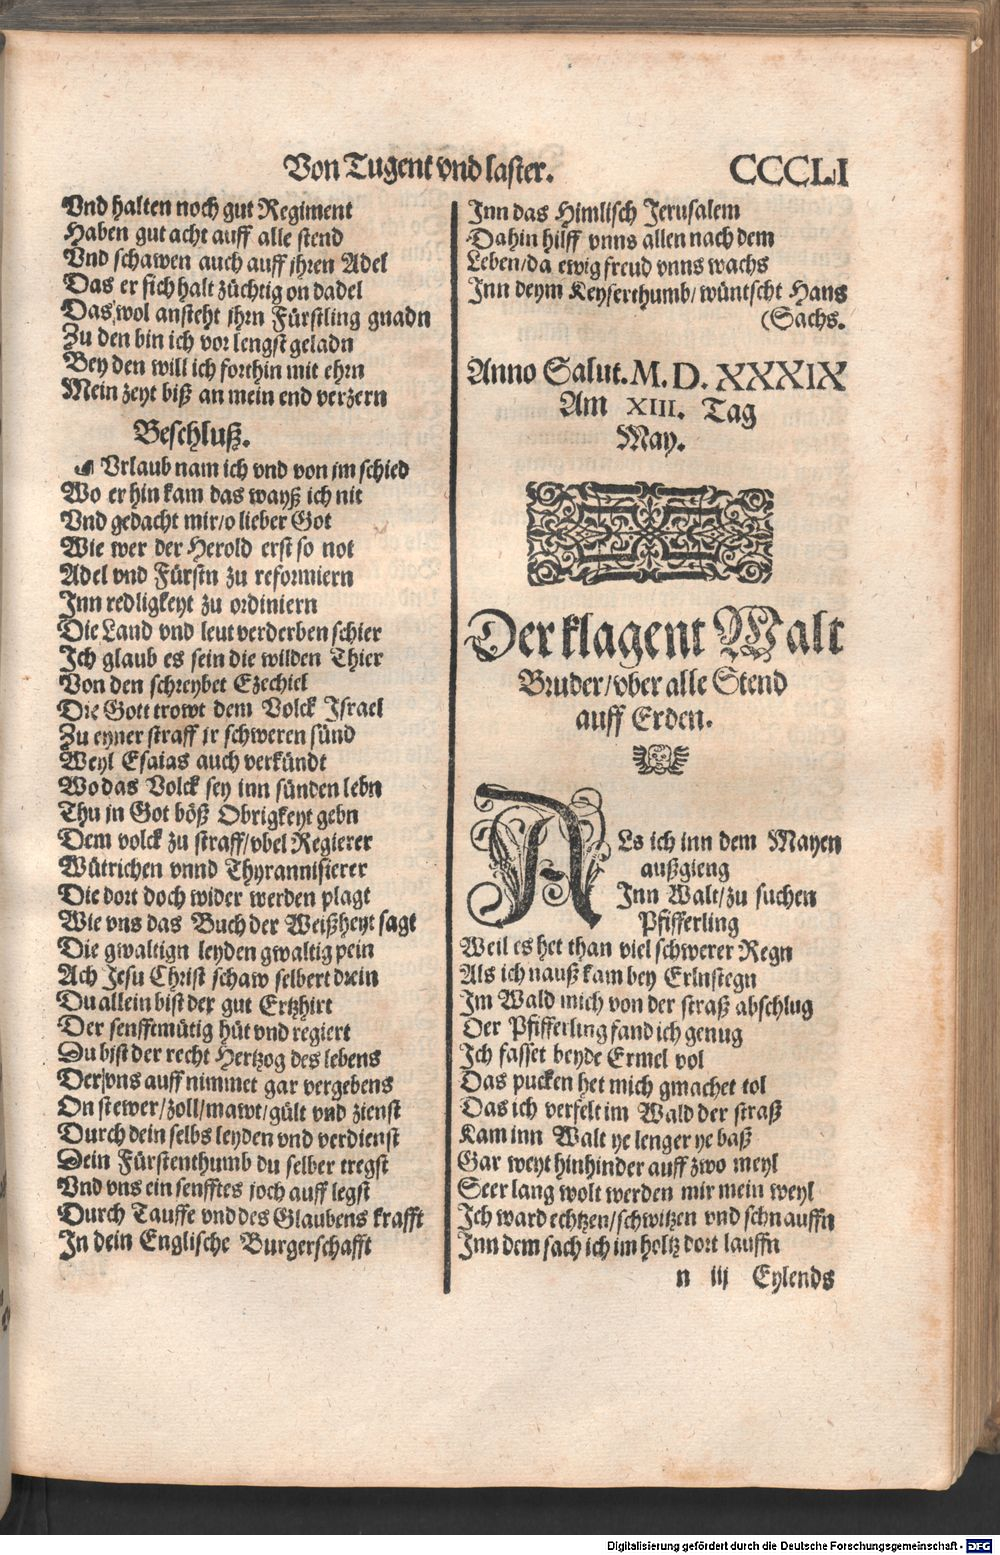 Von Tugent vnd laster. CCCLI
Vnd halten noch gut Regiment
Haben gut acht auff alle stend
Vnd schawen auch auff jhren Adel
Das er sich halt züchtig on dadel
Das wol ansteht jhrn Fürstling gnadn
Zu den bin ich vor lengst geladn
Bey den will ich forthin mit ehrn
Mein zeyt biß an mein end verzern
Beschluß.
Vrlaub nam ich vnd von jm schied
Wo er hin kam das wayß ich nit
Vnd gedacht mir/o lieber Got
Wie wer der Herold erst so not
Adel vnd Fürstn zu reformiern
Inn redligkeyt zu ordiniern
Die Land vnd leut verderben schier
Ich glaub es sein die wilden Thier
Von den schreybet Ezechiel
Die Gott trowt dem Volck Israel
Zu eyner straff jr schweren sünd
Weyl Esaias auch verkündt
Wo das Volck sey inn sünden lebn
Thu jn Got böß Obrigkeyt gebn
Dem volck zu straff/vbel Regierer
Wütrichen vnnd Thyrannisierer
Die dort doch wider werden plagt
Wie vns das Buch der Weißheyt sagt
Die gwaltign leyden gwaltig pein
Ach Jesu Christ schaw selbert drein
Du allein bist der gut Ertzhirt
Der senfftmütig hüt vnd regiert
Du bist der recht Hertzog des lebens
Der vns auff nimmet gar vergebens
On stewer/zoll/mawt/gült vnd zienst
Durch dein selbs leyden vnd verdienst
Dein Fürstenthumb du selber tregst
Vnd vns ein senfftes joch auff legst
Durch Tauffe vnd des Glaubens krafft
In dein Englische Burgerschafft
Inn das Himlisch Jerusalem
Dahin hilff vnns allen nach dem
Leben/da ewig freud vnns wachs
Inn deym Keyserthumb/wüntscht Hans
(Sachs.
Anno Salut. M. D. XXXIX
Am XIII. Tag
May.
Der klagent Walt
Bruder/vber alle Stend
auff Erden.
ALs ich inn dem Mayen
außgieng
Inn Walt/zu suchen
Pfifferling
Weil es het than viel schwerer Regn
Als ich nauß kam bey Erlnstegn
Im Wald mich von der straß abschlug
Der Pfifferling fand ich genug
Ich fasset beyde Ermel vol
Das pucken het mich gmachet tol
Das ich verfelt im Wald der straß
Kam inn Walt ye lenger ye baß
Gar weyt hinhinder auff zwo meyl
Seer lang wolt werden mir mein weyl
Ich ward echtzen/schwitzen vnd schnauffn
Inn dem sach ich im holtz dort lauffn
n iij Eylends
Digitalisierung gefördert durch die Deutsche Forschungsgemeinschaft - DFG